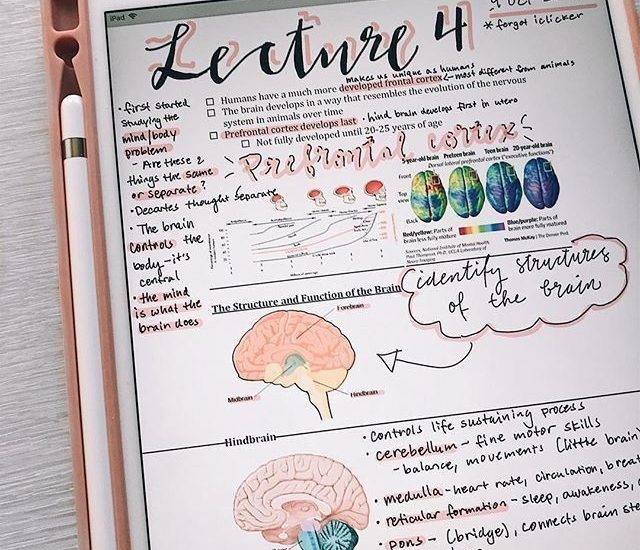 iPad
Lecture 4
* forgot iclicker
makes us unique as humans
Humans have a much more developed frontal cortex ← most different from animals
The brain develops in a way that resembles the evolution of the nervous
system in animals over time
Prefrontal cortex develops last · hind brain develops first in utero
Not fully developed until 20-25 years of age
• first started
studying the
mind/body
problem
- Are these 2
things the same
or separate?
• Decartes thought separate
• The brain
controls the
body - it's
central
• the mind
is what the
brain does
Prefrontal cortex
5-year-old brain Preteen brain Teen brain 20-year-old brain
Dorsal lateral prefrontal cortex ("executive functions")
Front
Top
view
Back
Red/yellow: Parts of
brain less fully mature
Blue/purple: Parts of
brain more fully matured
Sources: National Institute of Mental Health
Paul Thompson, Ph.D., UCLA Laboratory of
Neuro Imaging
Thomas McKay | The Denver Post
identify structures
of the brain
The Structure and Function of the Brain
Forebrain
Midbrain
Hindbrain
Hindbrain
• controls life sustaining process
• cerebellum - fine motor skills
- balance, movements (little brain)
• medulla - heart rate, circulation, breat
• reticular formation - sleep, awareness,
• pons - (bridge), connects brain ste